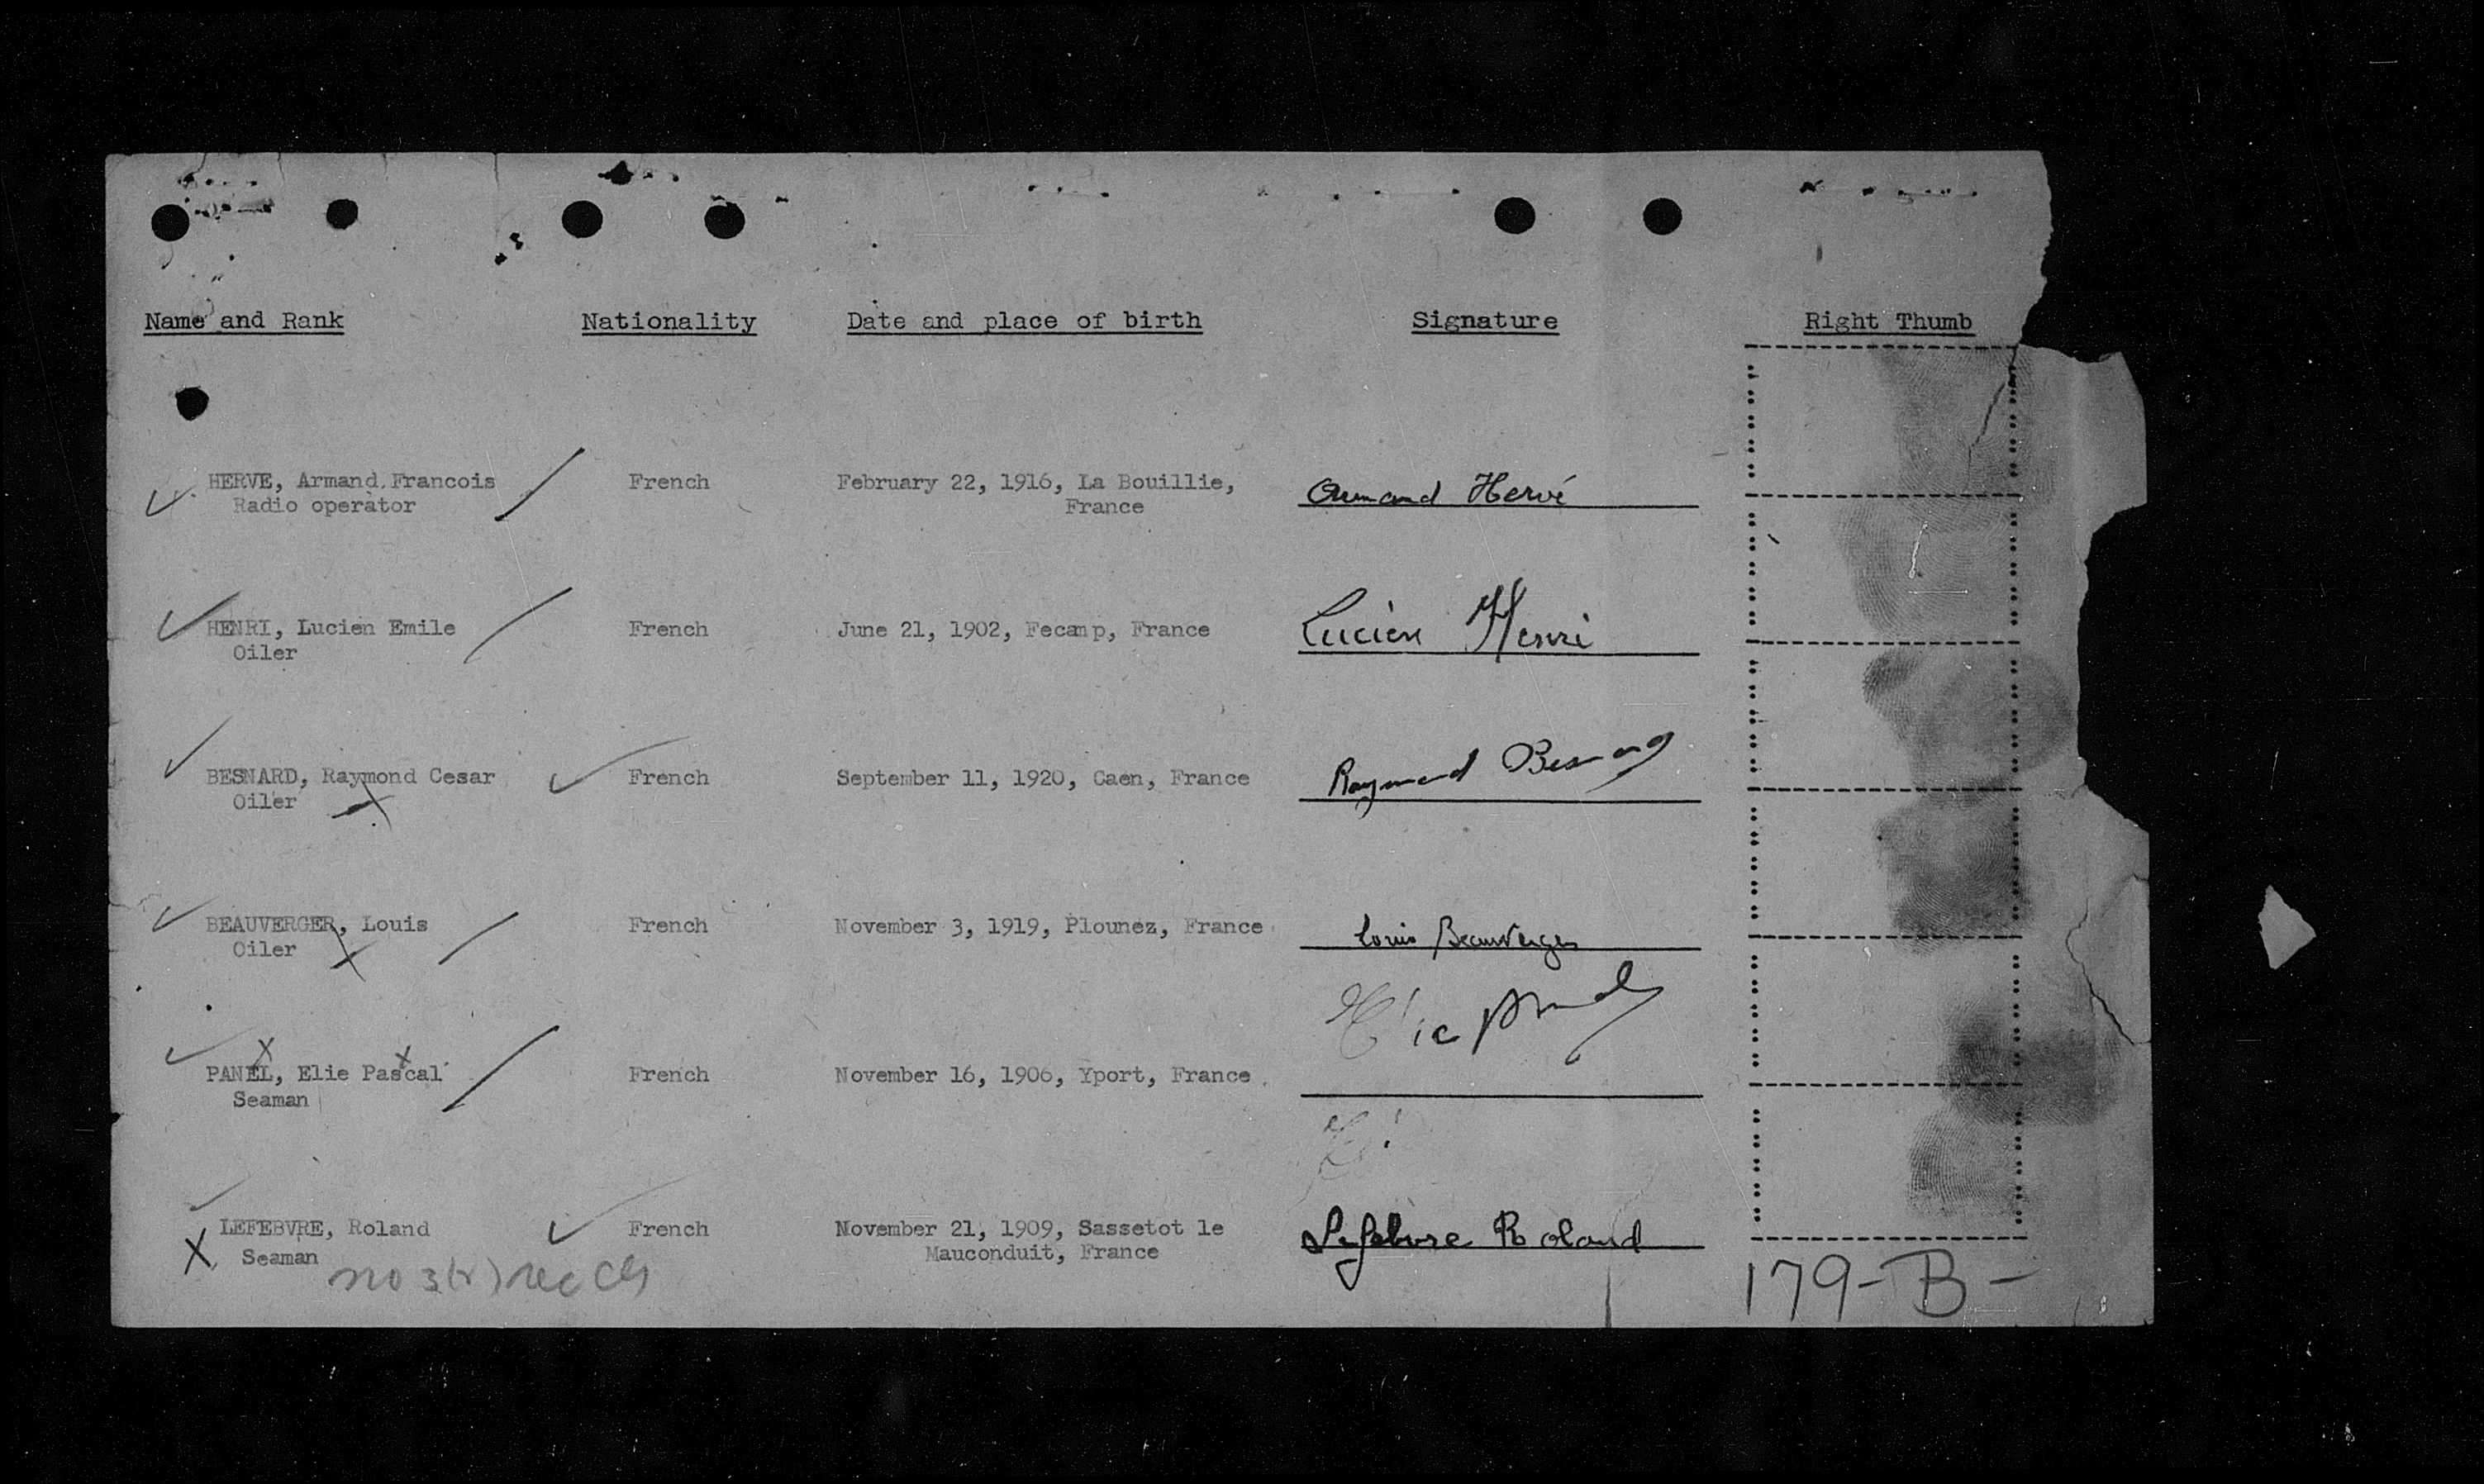 Name and Rank Nationality Date and place of birth Signature Right Thumb
HERVE, Armand Francois French February 22, 1916, La Bouillie, Armand Hervé
Radio operator France
HENRI, Lucien Emile French June 21, 1902, Fecamp, France Lucien Henri
Oiler
BESNARD, Raymond Cesar French September 11, 1920, Caen, France Raymond Besnard
Oiler
BEAUVERGER, Louis French November 3, 1919, Plounez, France Louis Beauverger
Oiler
Elie Panel
PANEL, Elie Pascal French November 16, 1906, Yport, France
Seaman
LEFEBVRE, Roland French November 21, 1909, Sassetot le Lefebvre Roland
Seaman Mauconduit, France
no 179-B-